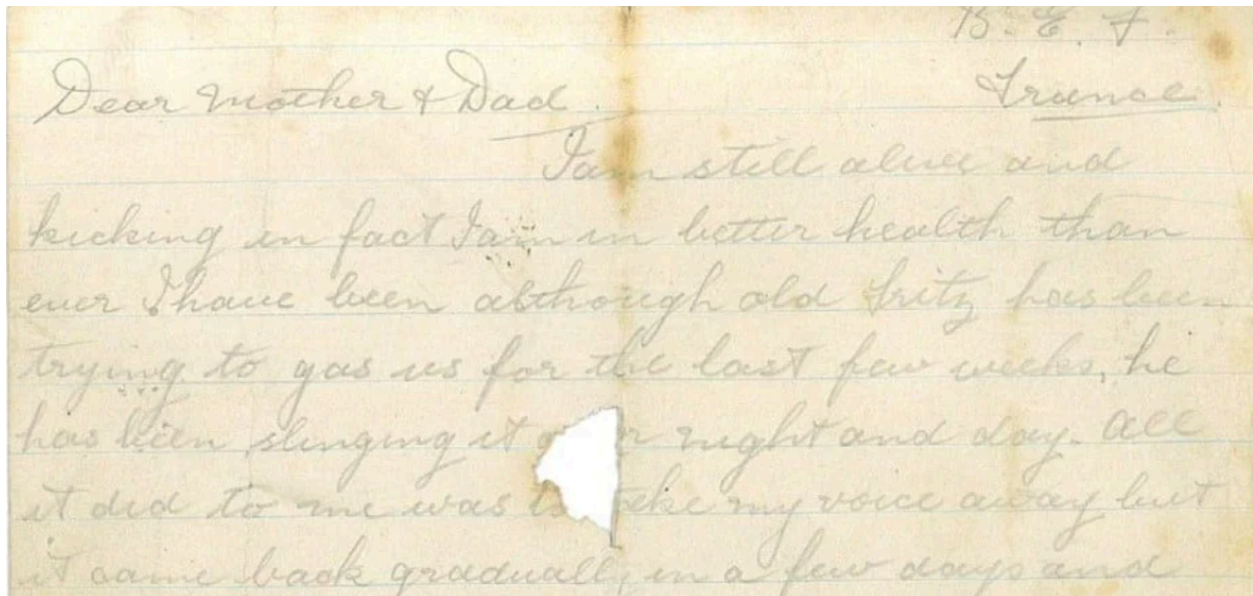 B. E. F.
Dear Mother & Dad. France.
I am still alive and
kicking in fact I am in better health than
ever I have been although old Fritz has been
trying to gas us for the last few weeks, he
has been slinging it night and day. All
it did to me was my voice away but
it came back gradually in a few days and